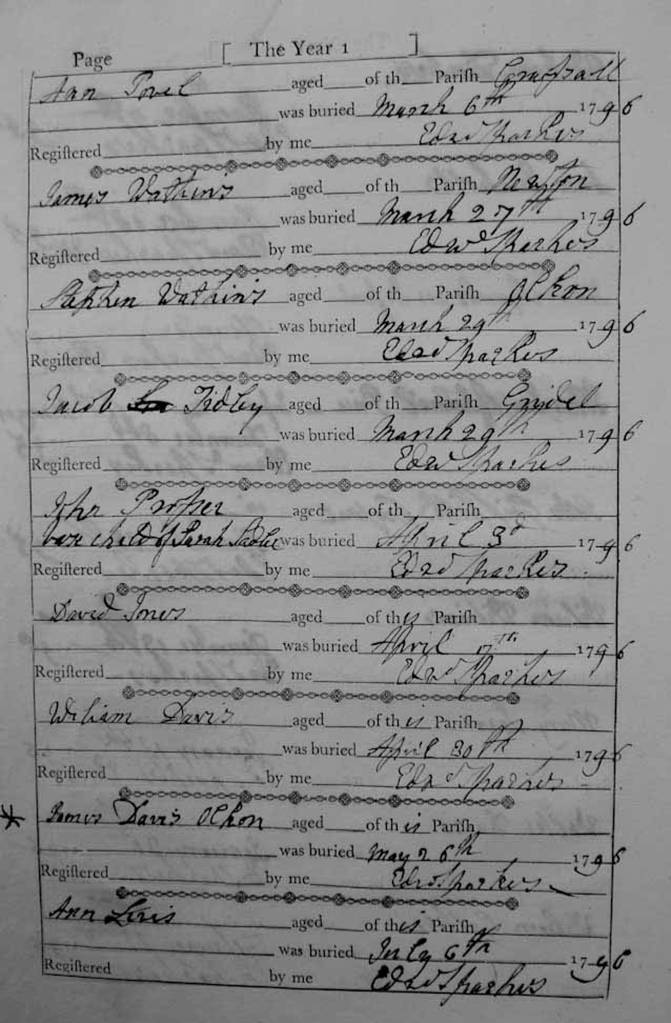 Page [ The Year 1 ]
Ann Powel aged of th Parish
was buried March 6th 1796
Registered by me Edwd Sparkes
James Watkins aged of th Parish Newton
was buried March 27th 1796
Registered by me Edwd Sparkes
Stephen Watkins aged of th Parish Olchon
was buried March 29th 1796
Registered by me Edwd Sparkes
Jacob Tidby aged of th Parish
was buried March 29th 1796
Registered by me Edwd Sparkes
John Prosser aged of th Parish
base child of Sarah was buried April 3d 1796
Registered by me Edwd Sparkes
David Jones aged of this Parish
was buried April 17th 1796
Registered by me Edwd Sparkes
William Davis aged of this Parish
was buried April 30th 1796
Registered by me Edwd Sparkes
* James Davis Olchon aged of this Parish
was buried May 26th 1796
Registered by me Edwd Sparkes
Ann Lewis aged of this Parish
was buried July 6th 1796
Registered by me Edwd Sparkes